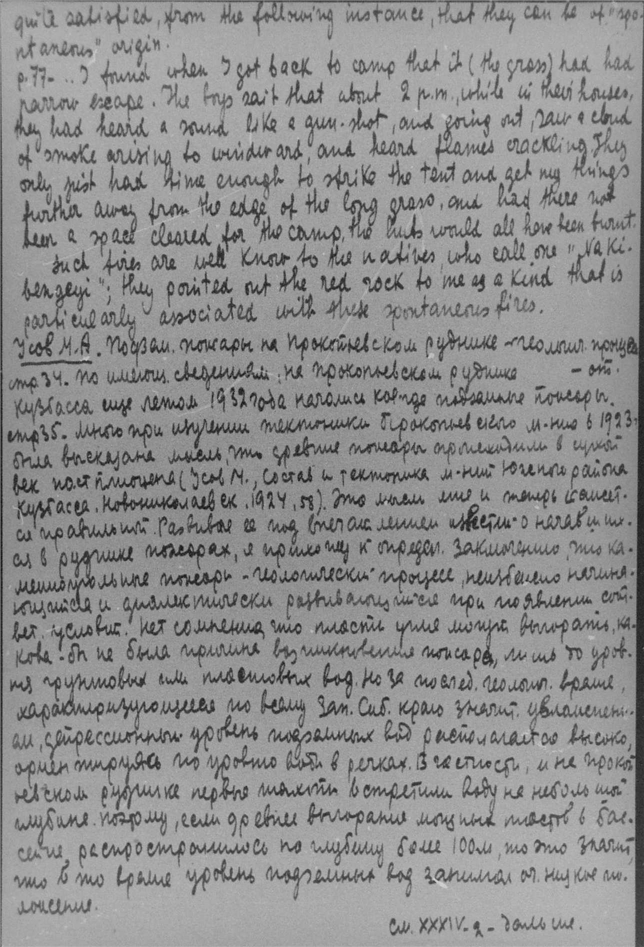 quite satisfied, from the following instance, that they can be of "spo-
ntaneous" origin.
p.77- .. I found when I got back to camp that it (the grass) had had
narrow escape. The boys sait that about 2 p.m., while in their houses,
they had heard a sound like a gun-shot, and going out, saw a cloud
of smoke arising to windward, and heard flames crackling. They
only just had time enough to strike the tent and get my things
further away from the edge of the long grass, and had there not
been a space cleared for the camp, the huts would all have been burnt.
Such fires are well know to the natives, who call one "Na Ki-
bengeyi"; they pointed out the red rock to me as a kind that is
particularly associated with these spontaneous fires.
Усов М.А. Подзем. пожары на Прокопьевском руднике - геологич. процесс
стр 34. По имеющ. сведениям, на прокопьевском руднике - от.
Кузбасса еще летом 1932 года начались кое где подземные пожары.
стр 35. - Мною при изучении тектоники Прокопьевского м-ния в 1923-
была высказана мысль, что древние пожары происходили в сухой
век постплиоцена (Усов М., Состав и тектоника м-ний Южного района
Кузбасса. Новониколаевск, 1924, 58). Эта мысль мне и теперь кажет-
ся правильной. Развивая ее под впечатлением извести о начавших-
ся в руднике пожарах, я прихожу к определ. заключению, что ка-
менноугольные пожары - геологический процесс, неизбежно начина-
ющийся и диалектически развивающийся при появлении соот-
вет. условий. Нет сомнения, что пласты угля могут выгорать, ка-
кова-бы не была причина возникновения пожара, лишь до уров-
ня грунтовых или пластовых вод. Но за послед. геологич. время,
характеризующееся по всему Зап. Сиб. краю значит. увлажнени-
ем, депрессионный уровень подземных вод располагается высоко,
ориентируясь по уровню воды в речках. В частности, и на Прокоп
ьевском руднике первые шахты встретили воду на небольшой
глубине. Поэтому, если древнее выгорание мощных пластов в бас-
сейне, распространилось на глубину более 100м, то это значит,
что в то время уровень подземных вод занимал оч. низкое по-
ложение.
см. XXXIV-2- дальше.